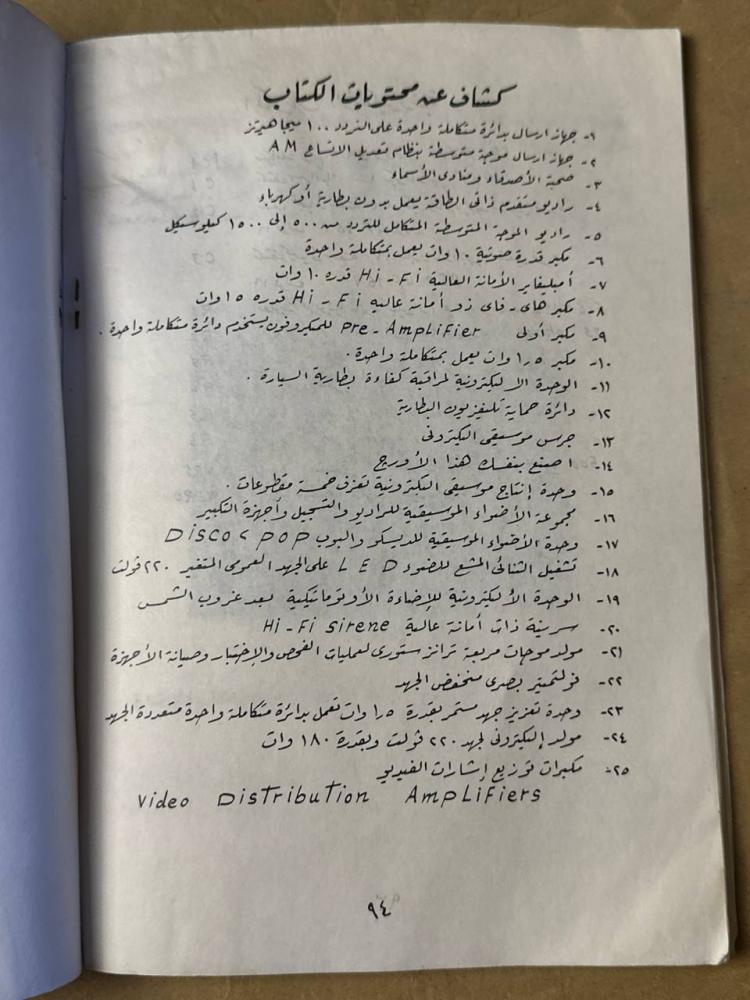 كشاف عن محتويات الكتاب
١- جهاز ارسال بدائرة متكاملة واحدة على التردد ١٠٠ ميجاهيرتز
٢- جهاز ارسال موجة متوسطة بنظام تعديل الاتساع AM
٣- صحبة الأصدقاء ومنادى الأسماء
٤- راديو متقدم ذاتى الطاقة يعمل بدون بطارية أو كهرباء
٥- راديو الموجة المتوسطة المتكامل للتردد من ٥٠٠ إلى ١٥٠٠ كيلوسيكل
٦- مكبر قدرة صوتية ١٠ وات يعمل بمتكاملة واحدة
٧- أمبليفاير الأمانة العالية Hi-Fi قدره ١٠ وات
٨- مكبر هاى-فاى ذو أمانة عاليه Hi-Fi قدره ١٥ وات
٩- مكبر أولى Pre-Amplifier للميكروفون يستخدم دائرة متكاملة واحدة .
١٠- مكبر ١٫٥ وات يعمل بمتكاملة واحدة .
١١- الوحدة الاليكترونية لمراقبة كفاءة بطارية السيارة .
١٢- دائرة حماية تليفزيون البطارية
١٣- جرس موسيقى اليكترونى
١٤- اصنع بنفسك هذا الأورج
١٥- وحدة إنتاج موسيقى اليكترونية تعزف خمسة مقطوعات .
١٦- مجموعة الأضواء الموسيقية للراديو والتسجيل وأجهزة التكبير
١٧- وحدة الأضواء الموسيقية للديسكو والبوب Disco < POP
١٨- تشغيل الثنائى المشع للضوء LED على الجهد العمومى المتغير ٢٢٠ ڤولت
١٩- الوحدة الأليكترونية للإضاءة الأوتوماتيكية بعد غروب الشمس
٢٠- سرينة ذات أمانة عالية Hi-Fi sirene
٢١- مولد موجات مربعة ترانزستورى لعمليات الفحص والإختبار وصيانة الأجهزة
٢٢- فولتميتر بصرى منخفض الجهد
٢٣- وحدة تعزيز جهد مستمر بقدرة ١٫٥ وات تعمل بدائرة متكاملة واحدة متعددة الجهد
٢٤- مولد إليكترونى لجهد ٢٢٠ ڤولت وبقدرة ١٨٠ وات
٢٥- مكبرات توزيع إشارات الفيديو
Video Distribution Amplifiers
٩٤